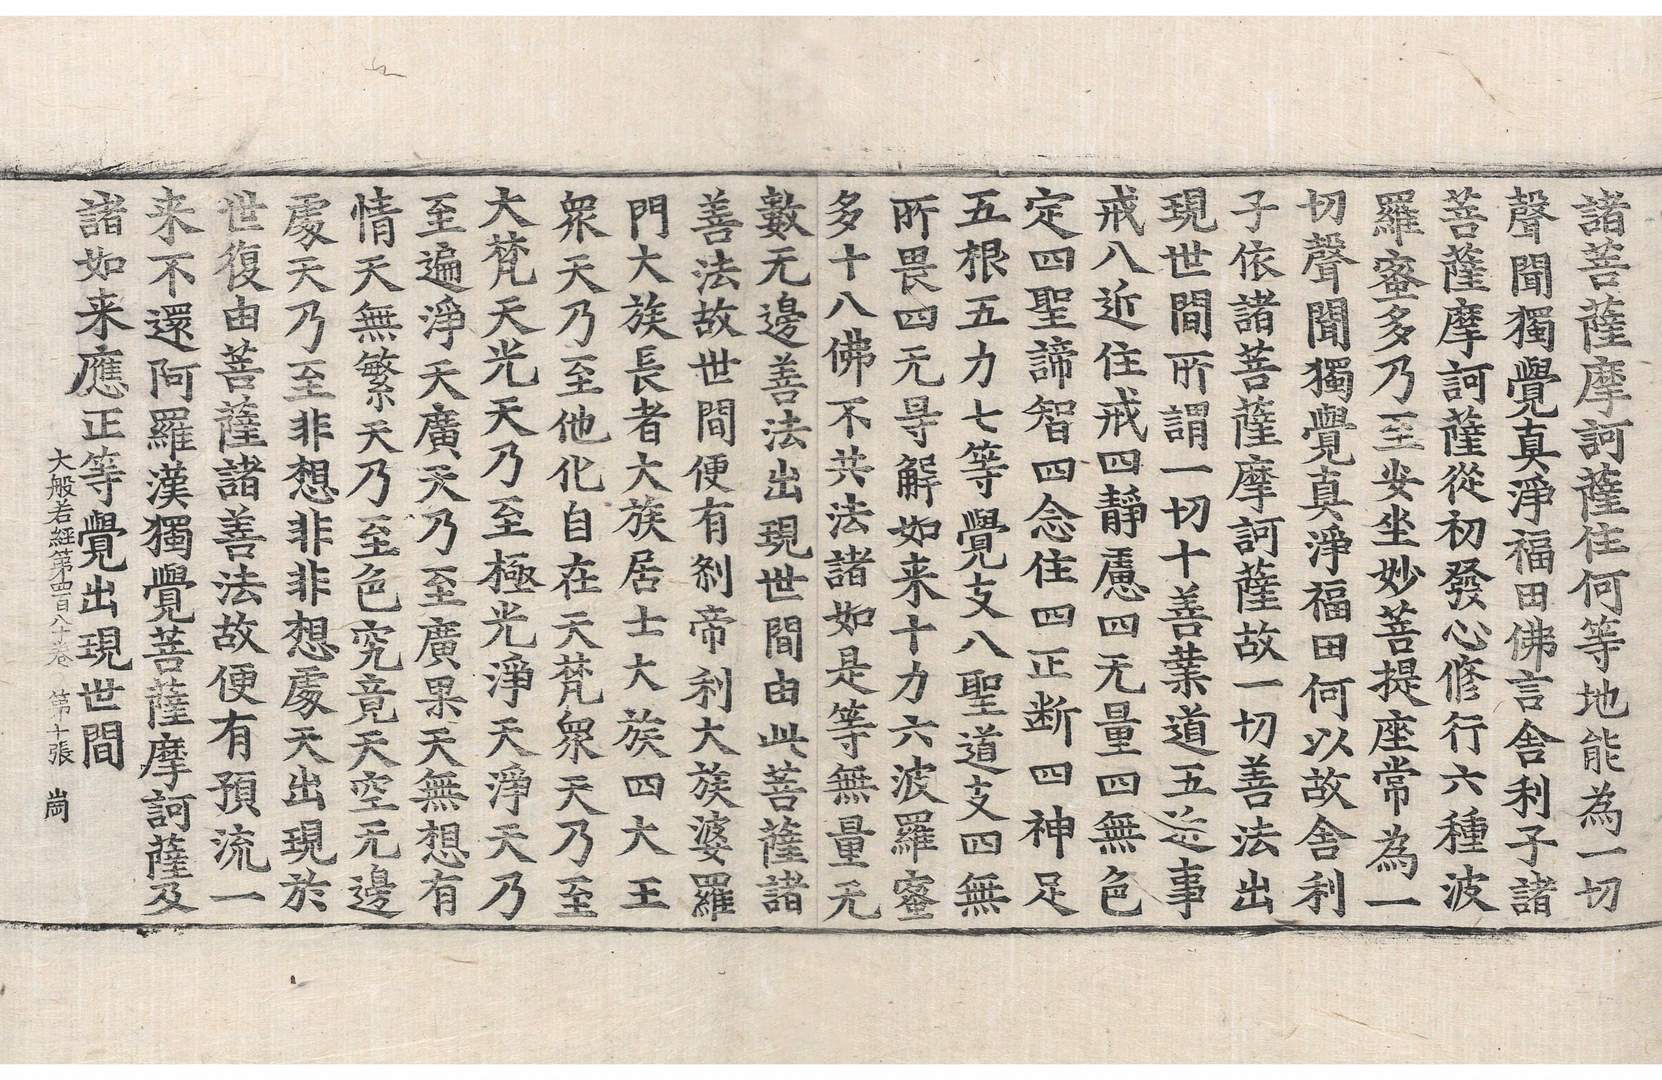 諸菩薩摩訶薩住何等地能為一切
聲聞獨覺真淨福田佛言舍利子諸
菩薩摩訶薩從初發心修行六種波
羅蜜多乃至安坐妙菩提座常為一
切聲聞獨覺真淨福田何以故舍利
子依諸菩薩摩訶薩故一切善法出
現世間所謂一切十善業道五近事
戒八近住戒四靜慮四无量四無色
定四聖諦智四念住四正断四神足
五根五力七等覺支八聖道支四無
所畏四无㝵解如来十力六波羅蜜
多十八佛不共法諸如是等無量无
數无邊善法出現世間由此菩薩諸
善法故世間便有剎帝利大族婆羅
門大族長者大族居士大族四大王
眾天乃至他化自在天梵眾天乃至
大梵天光天乃至極光淨天淨天乃
至遍淨天廣天乃至廣果天無想有
情天無繁天乃至色究竟天空无邊
處天乃至非想非非想處天出現於
世復由菩薩諸善法故便有預流一
来不還阿羅漢獨覺菩薩摩訶薩及
諸如来應正等覺出現世間
大般若経第四百八十卷 第十張 崗